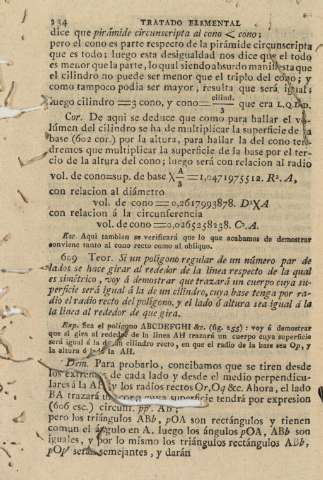 234 TRATADO ELEMENTAL
dice que pirámide circunscripta al cono < cono;
pero el cono es parte respecto de la pirámide circunscripta
que es todo; luego esta desigualdad nos dice que el todo
es menor que la parte, lo qual siendo absurdo manifiesta que
el cilindro no puede ser menor que el triplo del cono; y
como tampoco podia ser mayor, resulta que será igual;
luego cilindro = 3 cono, y cono = cilind./3 que era L.Q.D.D.
Cor. De aqui se deduce que como para hallar el vo-
lúmen del cilindro se ha de multiplicar la superficie de la
base (602 cor.) por la altura, para hallar la del cono ten-
dremos que multiplicar la superficie de la base por el ter-
cio de la altura del cono; luego será con relacion al radio
vol. de cono=sup. de base X A/3 = 1,0471975512. R². A,
con relacion al diámetro
vol. de cono = 0,2617993878. D²XA
con relacion á la circunferencia
vol. de cono = 0,0265258238. C². A.
Esc. Aqui tambien se verificará que lo que acabamos de demostrar
conviene tanto al cono recto como al obliquo.
609 Teor. Si un polígono regular de un número par de
lados se hace girar al rededor de la línea respecto de la qual
es simétrico, voy á demostrar que trazará un cuerpo cuya su-
perficie será igual á la de un cilindro, cuya base tenga por ra-
dio el radio recto del polígono, y el lado ó altura sea igual á la
la línea al rededor de que gira.
Exp. Sea el polígono ABCDEFGHI &c. (fig. 255) : voy á demostrar
que al gira al rededor de la línea AH trazará un cuerpo cuya superficie
será igual á la de un cilindro recto, en que el radio de la base sea Op, y
la altura AH.
Dem. Para probarlo, concibamos que se tiren desde
los extremos de cada lado y desde el medio perpendicu-
lares á la AH y los radios rectos Or, Oq &c. Ahora, el lado
BA trazará un cono cuya superficie tendrá por expresion
(606 esc.) circunf. pp'. AB;
pero los triángulos ABb, pOA son rectángulos y tienen
comun el ángulo en A, luego los ángulos pOA, ABb son
iguales, y por lo mismo los triángulos rectángulos ABb,
pOp' serán semejantes, y darán